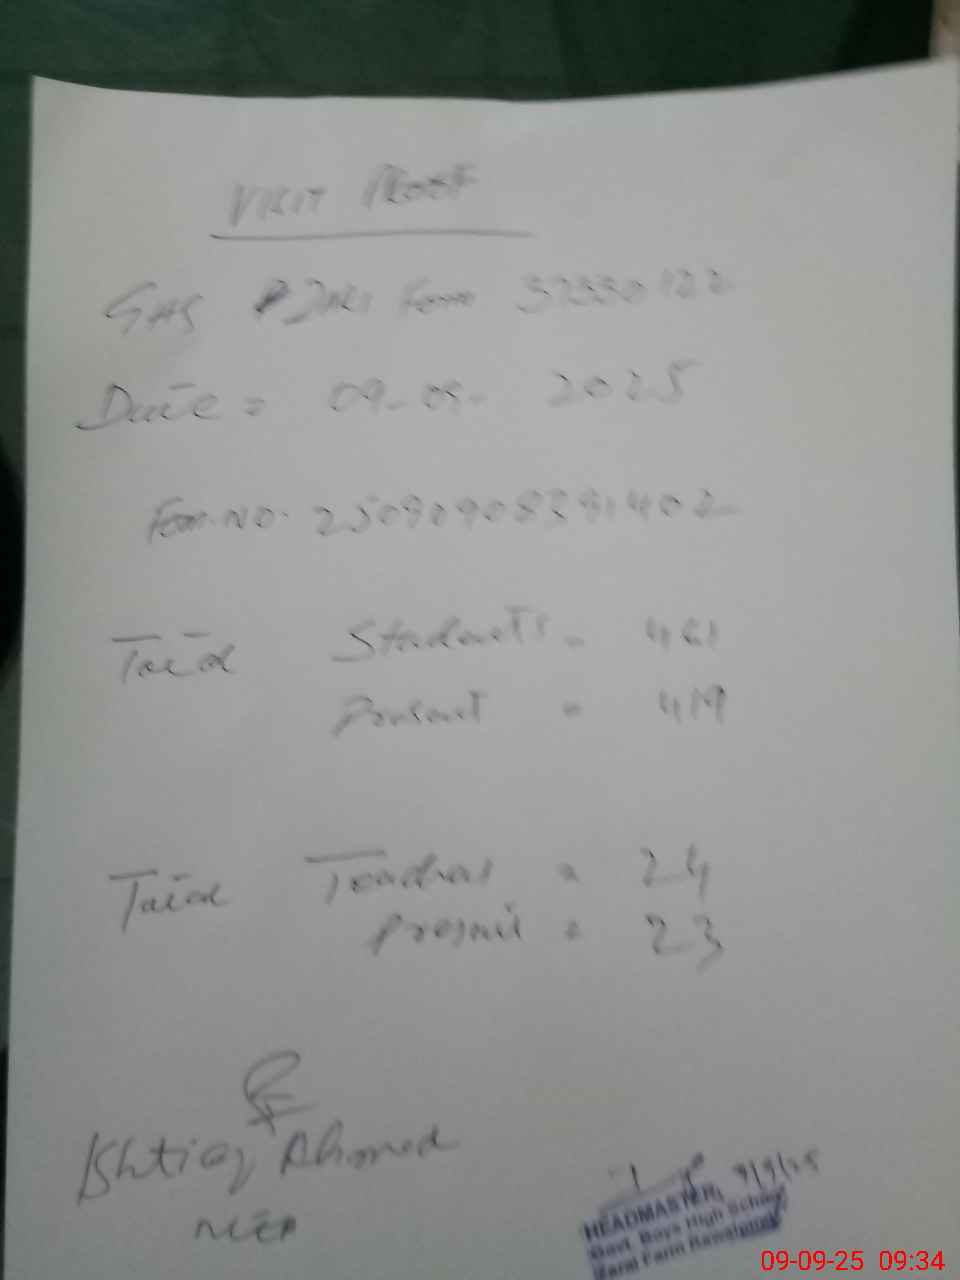 VISIT PROOF
GHS ZARI Farm 37330122
Date = 09-09- 2025
Form.NO. 25090908391402
Total Students = 461
Present = 419
Total Teachers = 24
Present = 23
Ishtiaq Ahmed
9/9/25
HEADMASTER,
Govt. Boys High School
Zarai Farm Rawalpindi
09-09-25 09:34